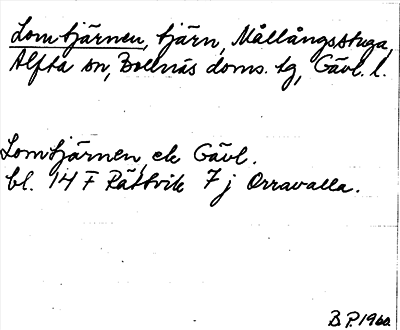 Lomtjärnen, tjärn, Mållångsstuga,
Alfta sn, Bollnäs doms. tg, Gävl. l.
Lomtjärnen, ek Gävl.
bl. 14 F Rättvik 7 j Orravalla.
B P. 1960.